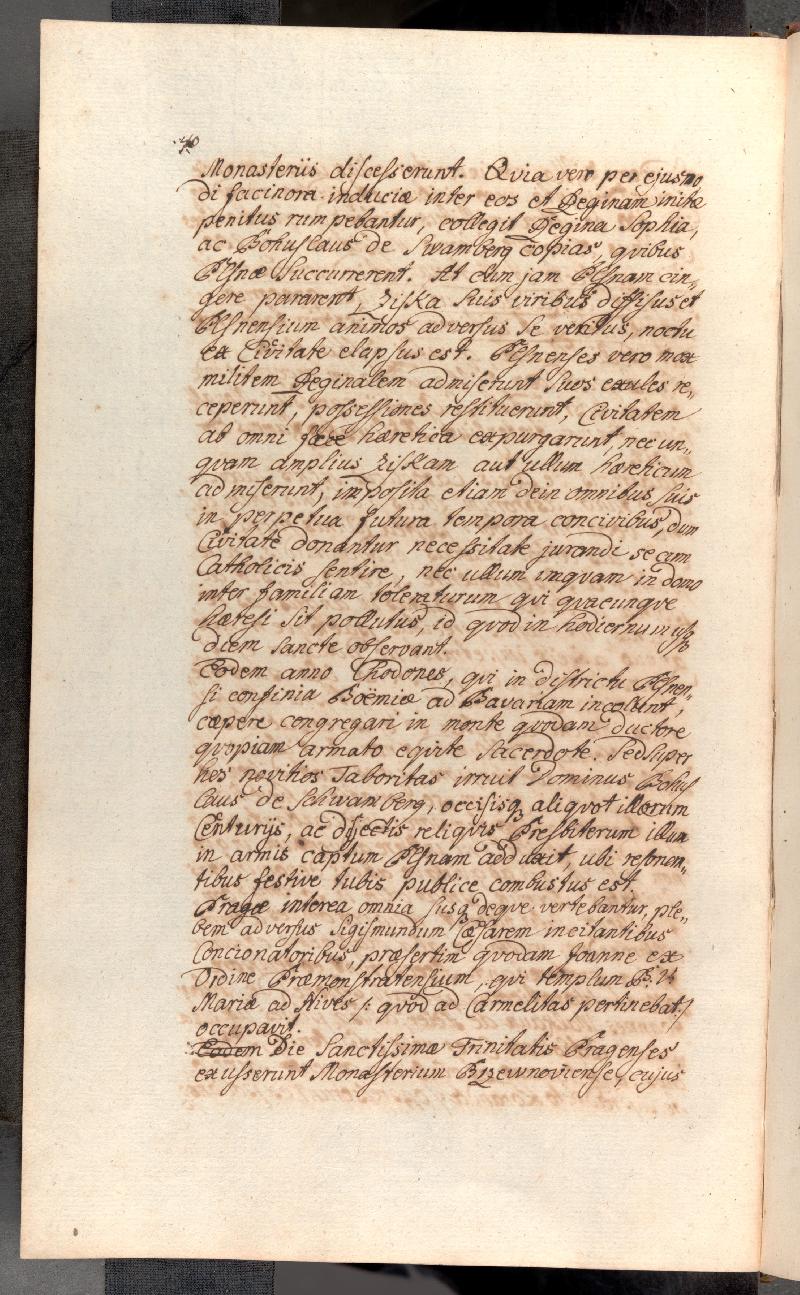 40
Monasteriis discesserunt. Qvia vero per ejusmo
di facinora induciæ inter eos et Reginam initæ
penitus rumpebantur, collegit Regina Sophia,
ac Bohuslaus de Swamberg copias, qvibus
Plsnæ succurrerent. At cum jam Plsnam cin„
gere pararent, Ziska suis viribus diffisus et
Plsnensium animos adversus se veritus, noctu
ex Civitate elapsus est. Plsnenses vero mox
militem Reginalem admiserunt suos exules re„
ceperunt, possessiones restituerunt, Civitatem
ab omni fæce hæretica expurgarunt, nec un„
qvam amplius Ziskam aut ullum hæreticum
admiserunt, imposita etiam dein omnibus suis
in perpetua futura tempora concivibus, dum
Civitate donantur necessitate jurandi se cum
Catholicis sentire, nec ullum unqvam in domo
inter familiam toleraturum qvi qvacunqve
hæresi sit pollutus, id qvod in hodiernum usq
diem sancte observant.
Eodem anno Chodones, qvi in districtu Plsnen„
si confinia Boëmiæ ad Bavariam incollunt,
cæpere congregari in monte qvodam ductore
qvopiam armato eqvite sacerdote. Sed super
hos novitios Taboritas irruit Dominus Bohus
laus de Schwamberg, occisisq aliqvot illorum
Centurijs, ac disjectis reliqvis Presbiterum illum
in armis captum Plsnam adduxit, ubi resonan„
tibus festive tubis publice combustus est.
Pragæ interea omnia susq deqve vertebantur, ple„
bem adversus Sigismundum Cæsarem incitantibus
Concionatoribus, præsertim qvodam Joanne ex
Ordine Præmonstratensium, qvi templum B. V
Mariæ ad Nives /: qvod ad Carmelitas pertinebat :/
occupavit.
Eodem Die Sanctissimæ Trinitatis Pragenses
exusserunt Monasterium Brzewnoviense, cujus